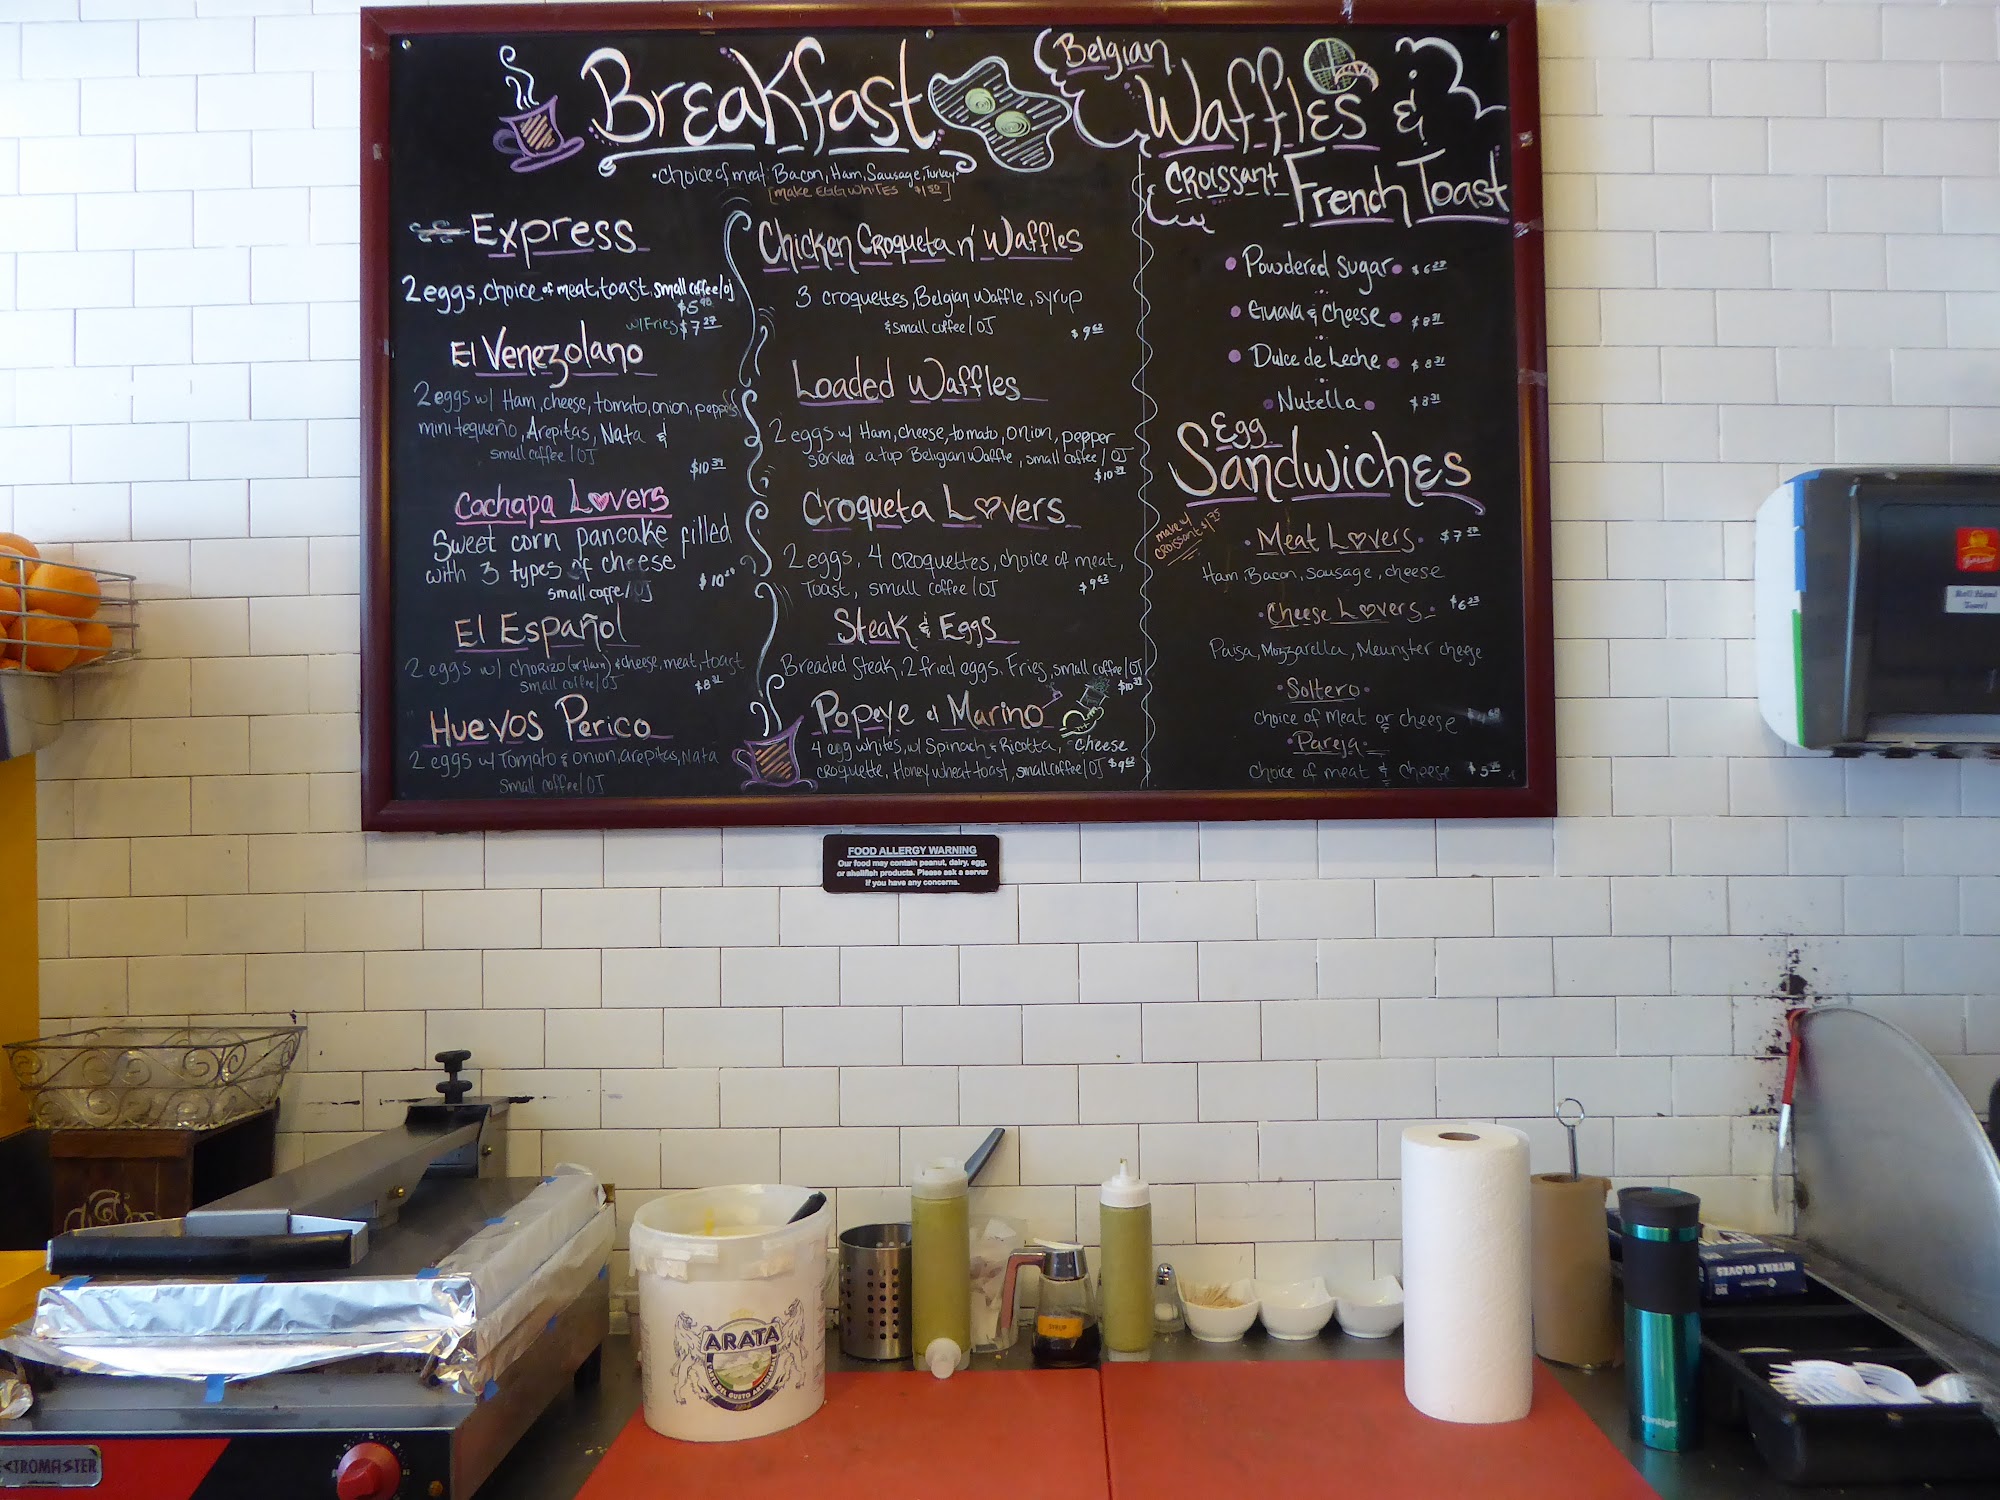 Breakfast
•choice of meat: Bacon, Ham, Sausage, Turkey•
[make EGG WHITES $1.50]
Express
2 eggs, choice of meat, toast, small coffee/OJ
$5
w/Fries $7.27
El Venezolano
2 eggs w/ Ham, cheese, tomato, onion, peppers,
mini tequeño, Arepitas, Nata &
small coffee/OJ
$10.39
Cachapa L♥vers
Sweet corn pancake filled
with 3 types of cheese
small coffe/OJ
$10
El Español
2 eggs w/ CHORIZO (or Ham) & cheese, meat, toast
small coffee/OJ
$8.31
Huevos Perico
2 eggs w/ Tomato & onion, arepitas, Nata
small coffee/OJ
Chicken Croqueta n' Waffles
3 croquettes, Belgian Waffle, syrup
& small coffee/OJ
$9.62
Loaded Waffles
2 eggs w/ Ham, cheese, tomato, onion, pepper
served atup Beligian Waffle, small coffee/OJ
$10.39
Croqueta L♥vers
2 eggs, 4 CROquettes, choice of meat,
Toast, small coffee/OJ
$9.62
Steak & Eggs
Breaded Steak, 2 fried eggs, Fries, small coffee/OJ
$10.39
Popeye el Marino
4 egg whites, w/ Spinach & Ricotta, cheese
croquette, Honey wheat toast, small coffee/OJ $9.62
Belgian
Waffles &
CROissant French Toast
• Powdered Sugar • $6.23
• Guava & Cheese • $8.31
• Dulce de Leche • $8.31
• Nutella • $8.31
Egg
Sandwiches
make w/
CROissant $1.75
• Meat L♥vers • $7.27
Ham, Bacon, sausage, cheese
• Cheese L♥vers • $6.23
Paisa, Mozzarella, Meunster cheese
• Soltero •
choice of meat or cheese
• Pareja •
choice of meat & cheese $5
FOOD ALLERGY WARNING
Our food may contain peanut, dairy, egg,
or shellfish products. Please ask a server
if you have any concerns.
ARATA
SYRUP
NITRILE GLOVES
contigo
CTROMASTER